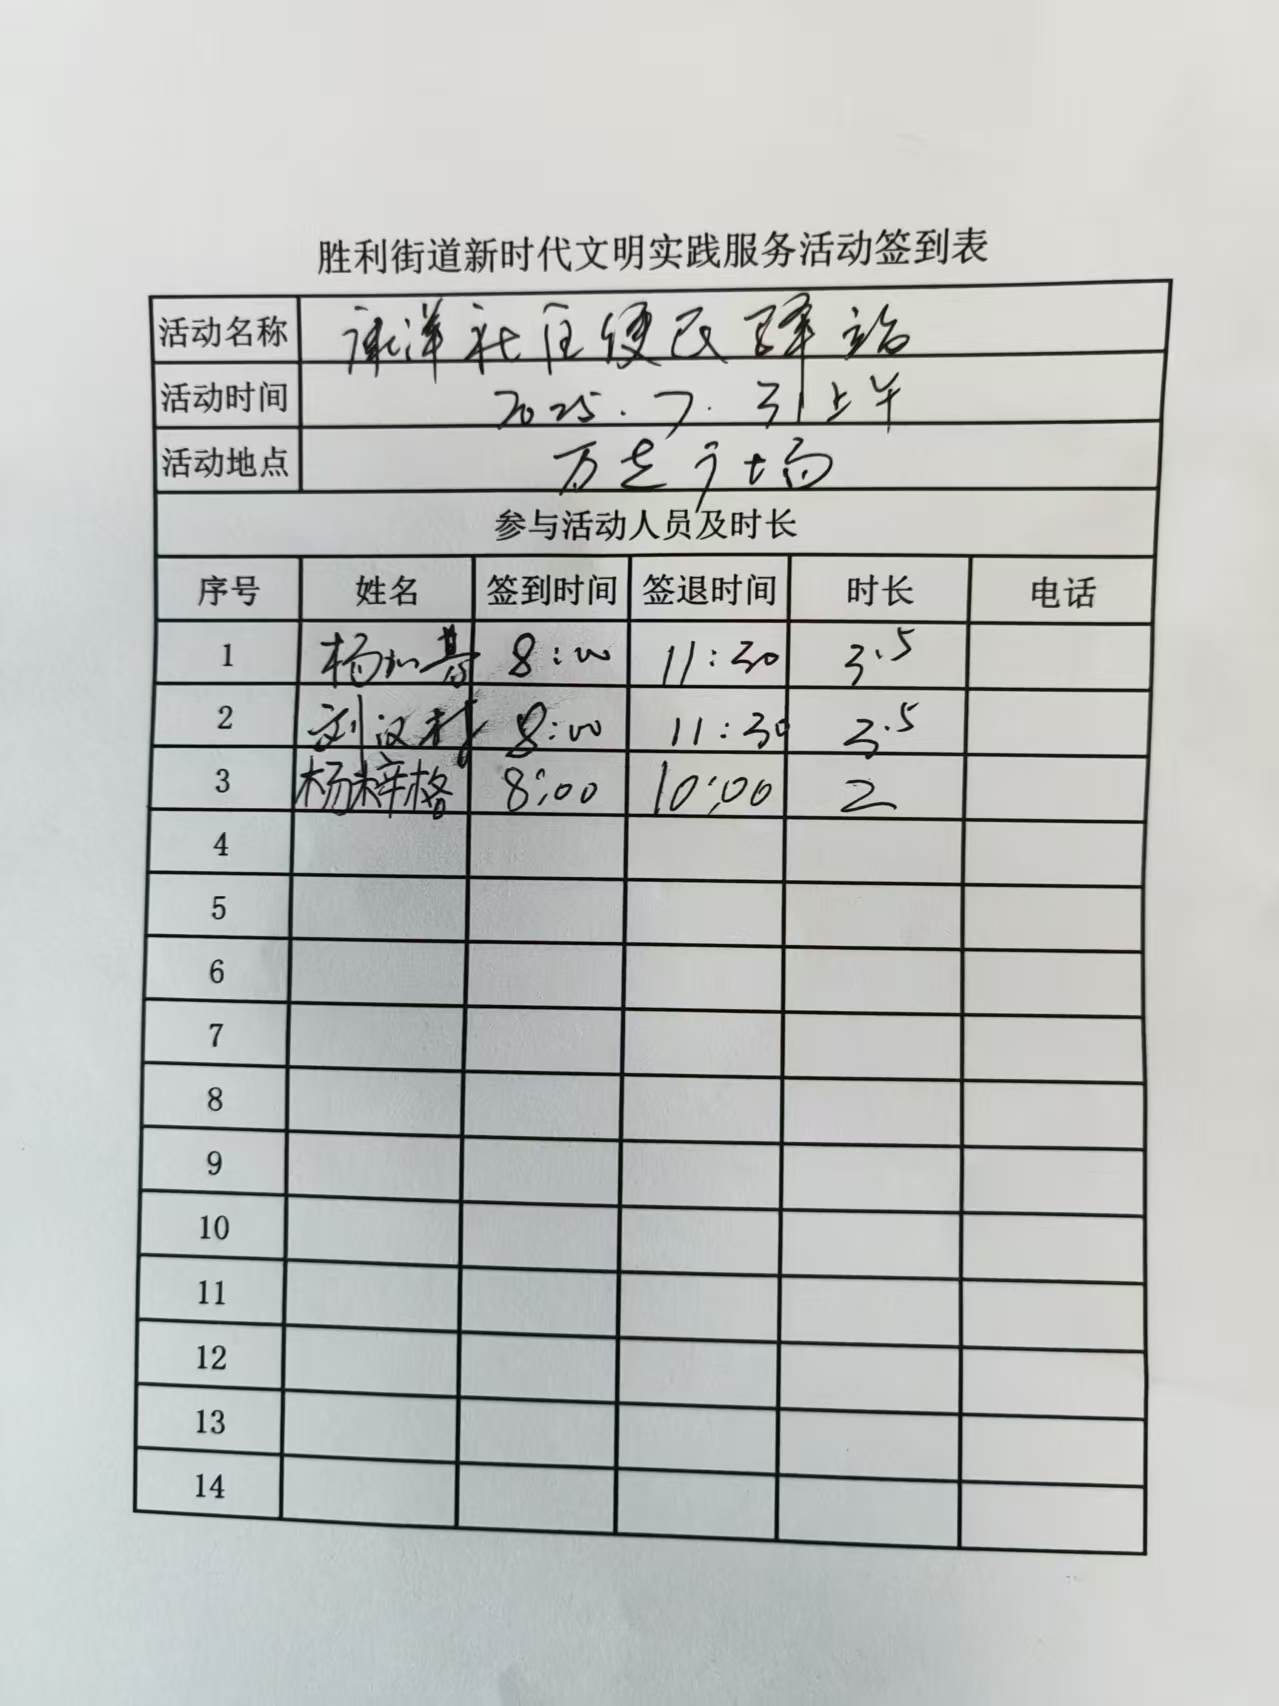 胜利街道新时代文明实践服务活动签到表
活动名称 社区便民驿站
活动时间 2025.7.31上午
活动地点 万达广场
参与活动人员及时长
序号 姓名 签到时间 签退时间 时长 电话
1 杨 8:00 11:30 3.5
2 刘汉 8:00 11:30 3.5
3 杨梓格 8:00 10:00 2
4
5
6
7
8
9
10
11
12
13
14